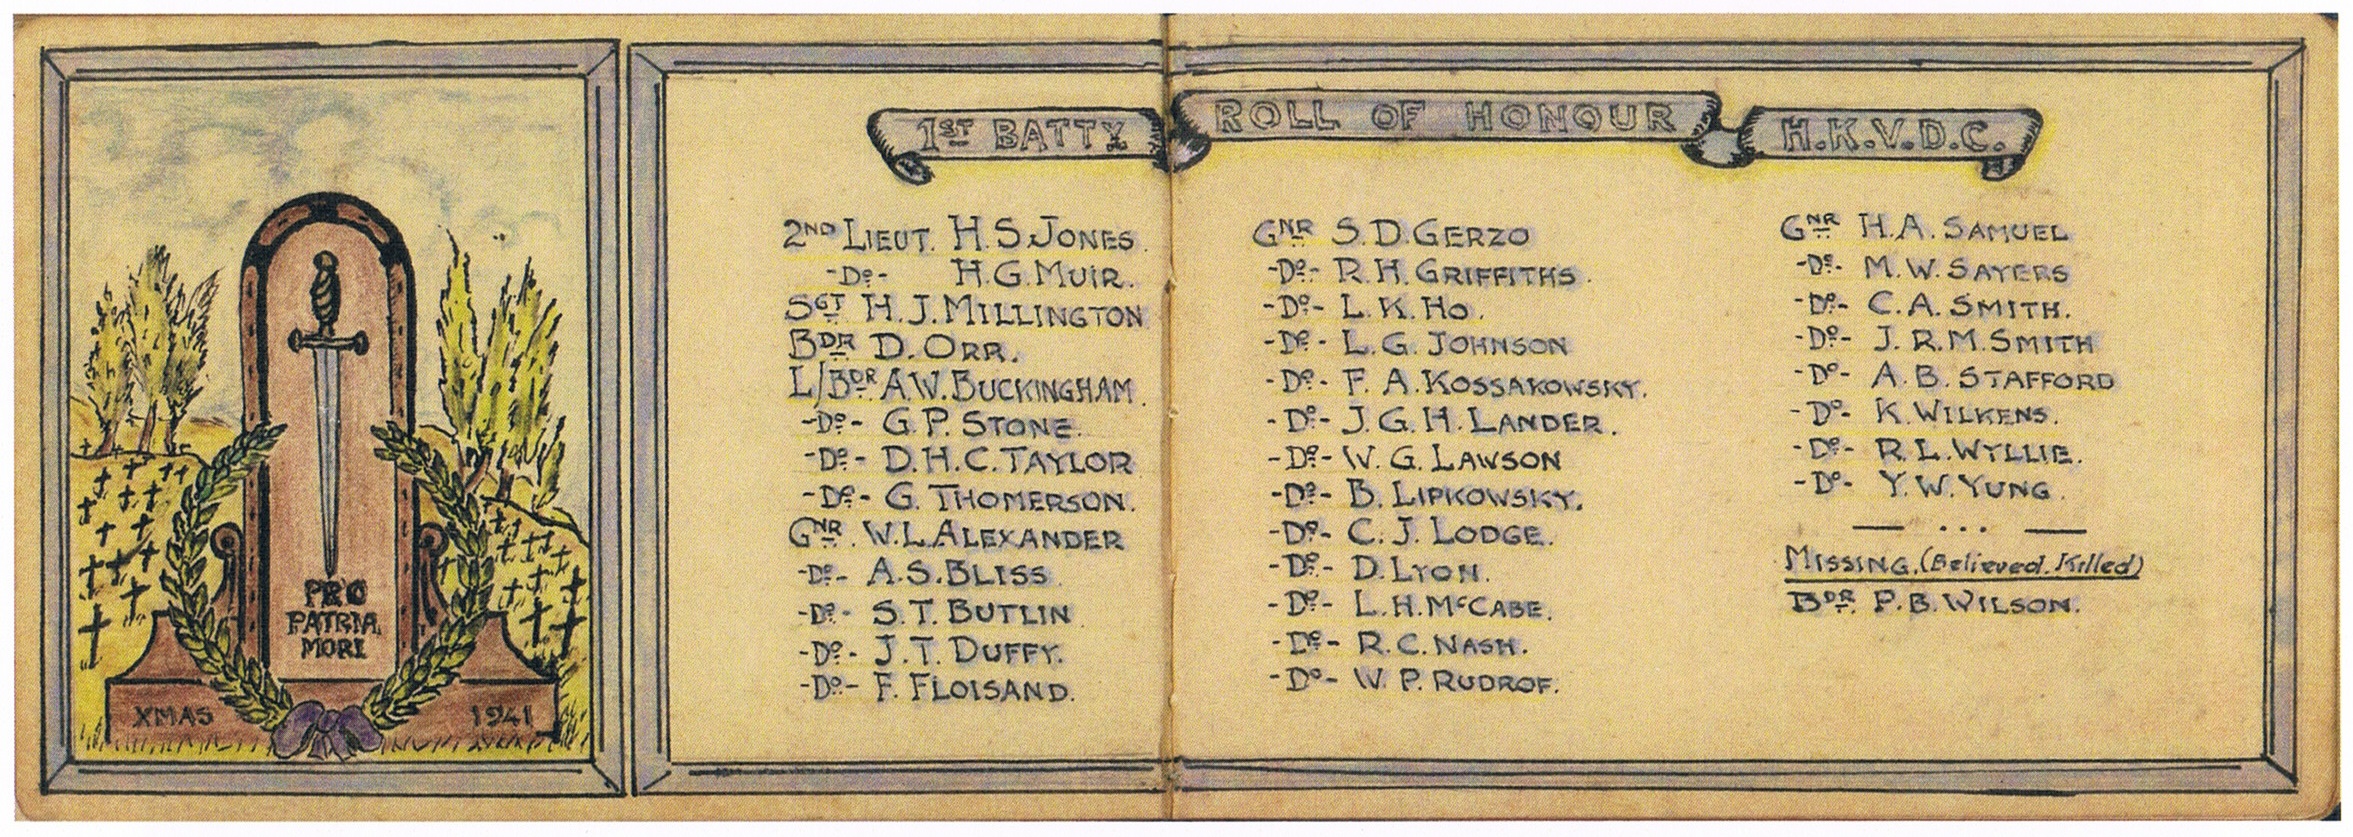 PRO
PATRIA
MORI
XMAS 1941
1ST BATTY. ROLL OF HONOUR H.K.V.D.C.
2ND LIEUT. H.S. JONES.
-Do- H.G. MUIR.
SGT H.J. MILLINGTON
BDR D. ORR.
L/BDR A.W. BUCKINGHAM.
-Do- G.P. STONE.
-Do- D.H.C. TAYLOR
-Do- G. THOMERSON.
GNR. W.L. ALEXANDER
-Do- A.S. BLISS.
-Do- S.T. BUTLIN
-Do- J.T. DUFFY.
-Do- F. FLOISAND.
GNR S.D. GERZO
-Do- R.H. GRIFFITHS.
-Do- L.K. HO.
-Do- L.G. JOHNSON
-Do- F.A. KOSSAKOWSKY.
-Do- J.G.H. LANDER.
-Do- W.G. LAWSON
-Do- B. LIPKOWSKY.
-Do- C.J. LODGE.
-Do- D. LYON.
-Do- L.H. McCABE.
-Do- R.C. NASH.
-Do- W.P. RUDROF.
GNR H.A. SAMUEL
-Do- M.W. SAYERS
-Do- C.A. SMITH.
-Do- J.R.M. SMITH
-Do- A.B. STAFFORD
-Do- K. WILKENS.
-Do- R.L. WYLLIE.
-Do- Y.W. YUNG.
MISSING. (Believed. Killed)
BDR. P.B. WILSON.